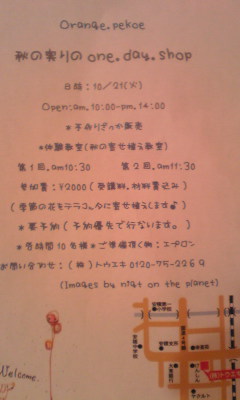 Orange.pekoe
秋の実りのone.day.shop
日時:10/21(火)
Open:am.10:00-pm.14:00
*手作りざっか販売
*体験教室(秋の寄せ植え教室)
第1回.am10:30 第2回.am11:30
参加費:¥2000(受講料.材料費込み)
(季節の花をテラコッタに寄せ植えします♪)
*要予約(予約優先で行ないます。)
*各時間10名様*ご準備頂く物:エプロン
お問い合わせ:(株)トウエキ 0120-75-2269
(Images by night on the planet)
Welcome.